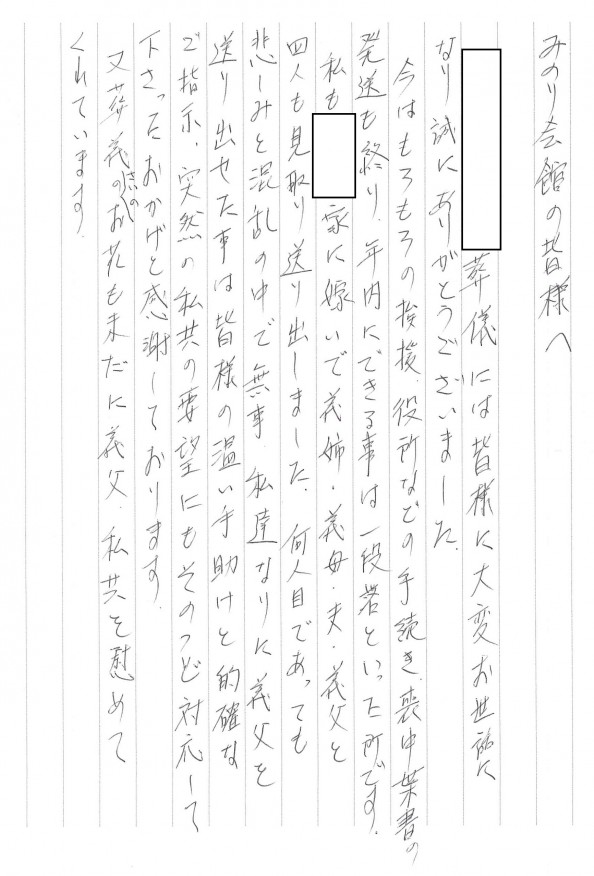 みのり会館の皆様へ
葬儀には皆様に大変お世話に
なり誠にありがとうございました.
今はもろもろの挨拶、役所などの手続き、喪中葉書の
発送も終り、年内にできる事は一段落といった所です.
私も
家に嫁いで義姉・義母・夫・義父と
四人も見取り送り出しました. 何人目であっても
悲しみと混乱の中で無事、私達なりに義父を
送り出せた事は皆様の温い手助けと的確な
ご指示、突然の私共の要望にもそのつど対応して
下さったおかげと感謝しております.
又葬儀のときのお花も未だに義父、私共を慰めて
くれています.